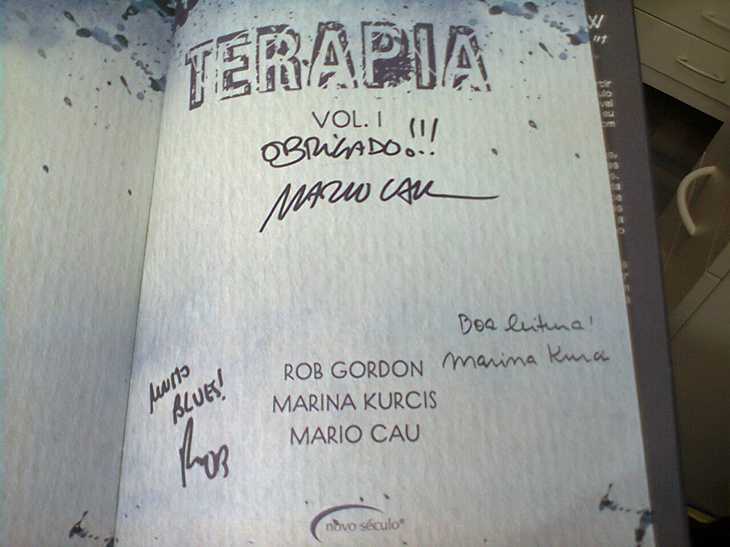 TERAPIA
VOL. I
OBRIGADO!!!
MARIO CAU
Boa leitura!
Marina Kurcis
ROB GORDON
MARINA KURCIS
MARIO CAU
MUITO
BLUES!
ROB
novo século®